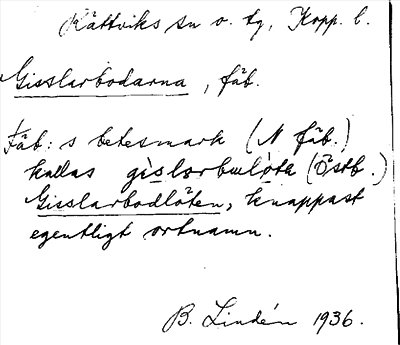 Rättviks sn o. tg, Kopp. l.
Gisslarbodarna, fäb.
Fäb:s betesmark (N fäb.)
kallas (Östb.)
Gisslarbodlöten, knappast
egentligt ortnamn.
B. Lindén 1936.